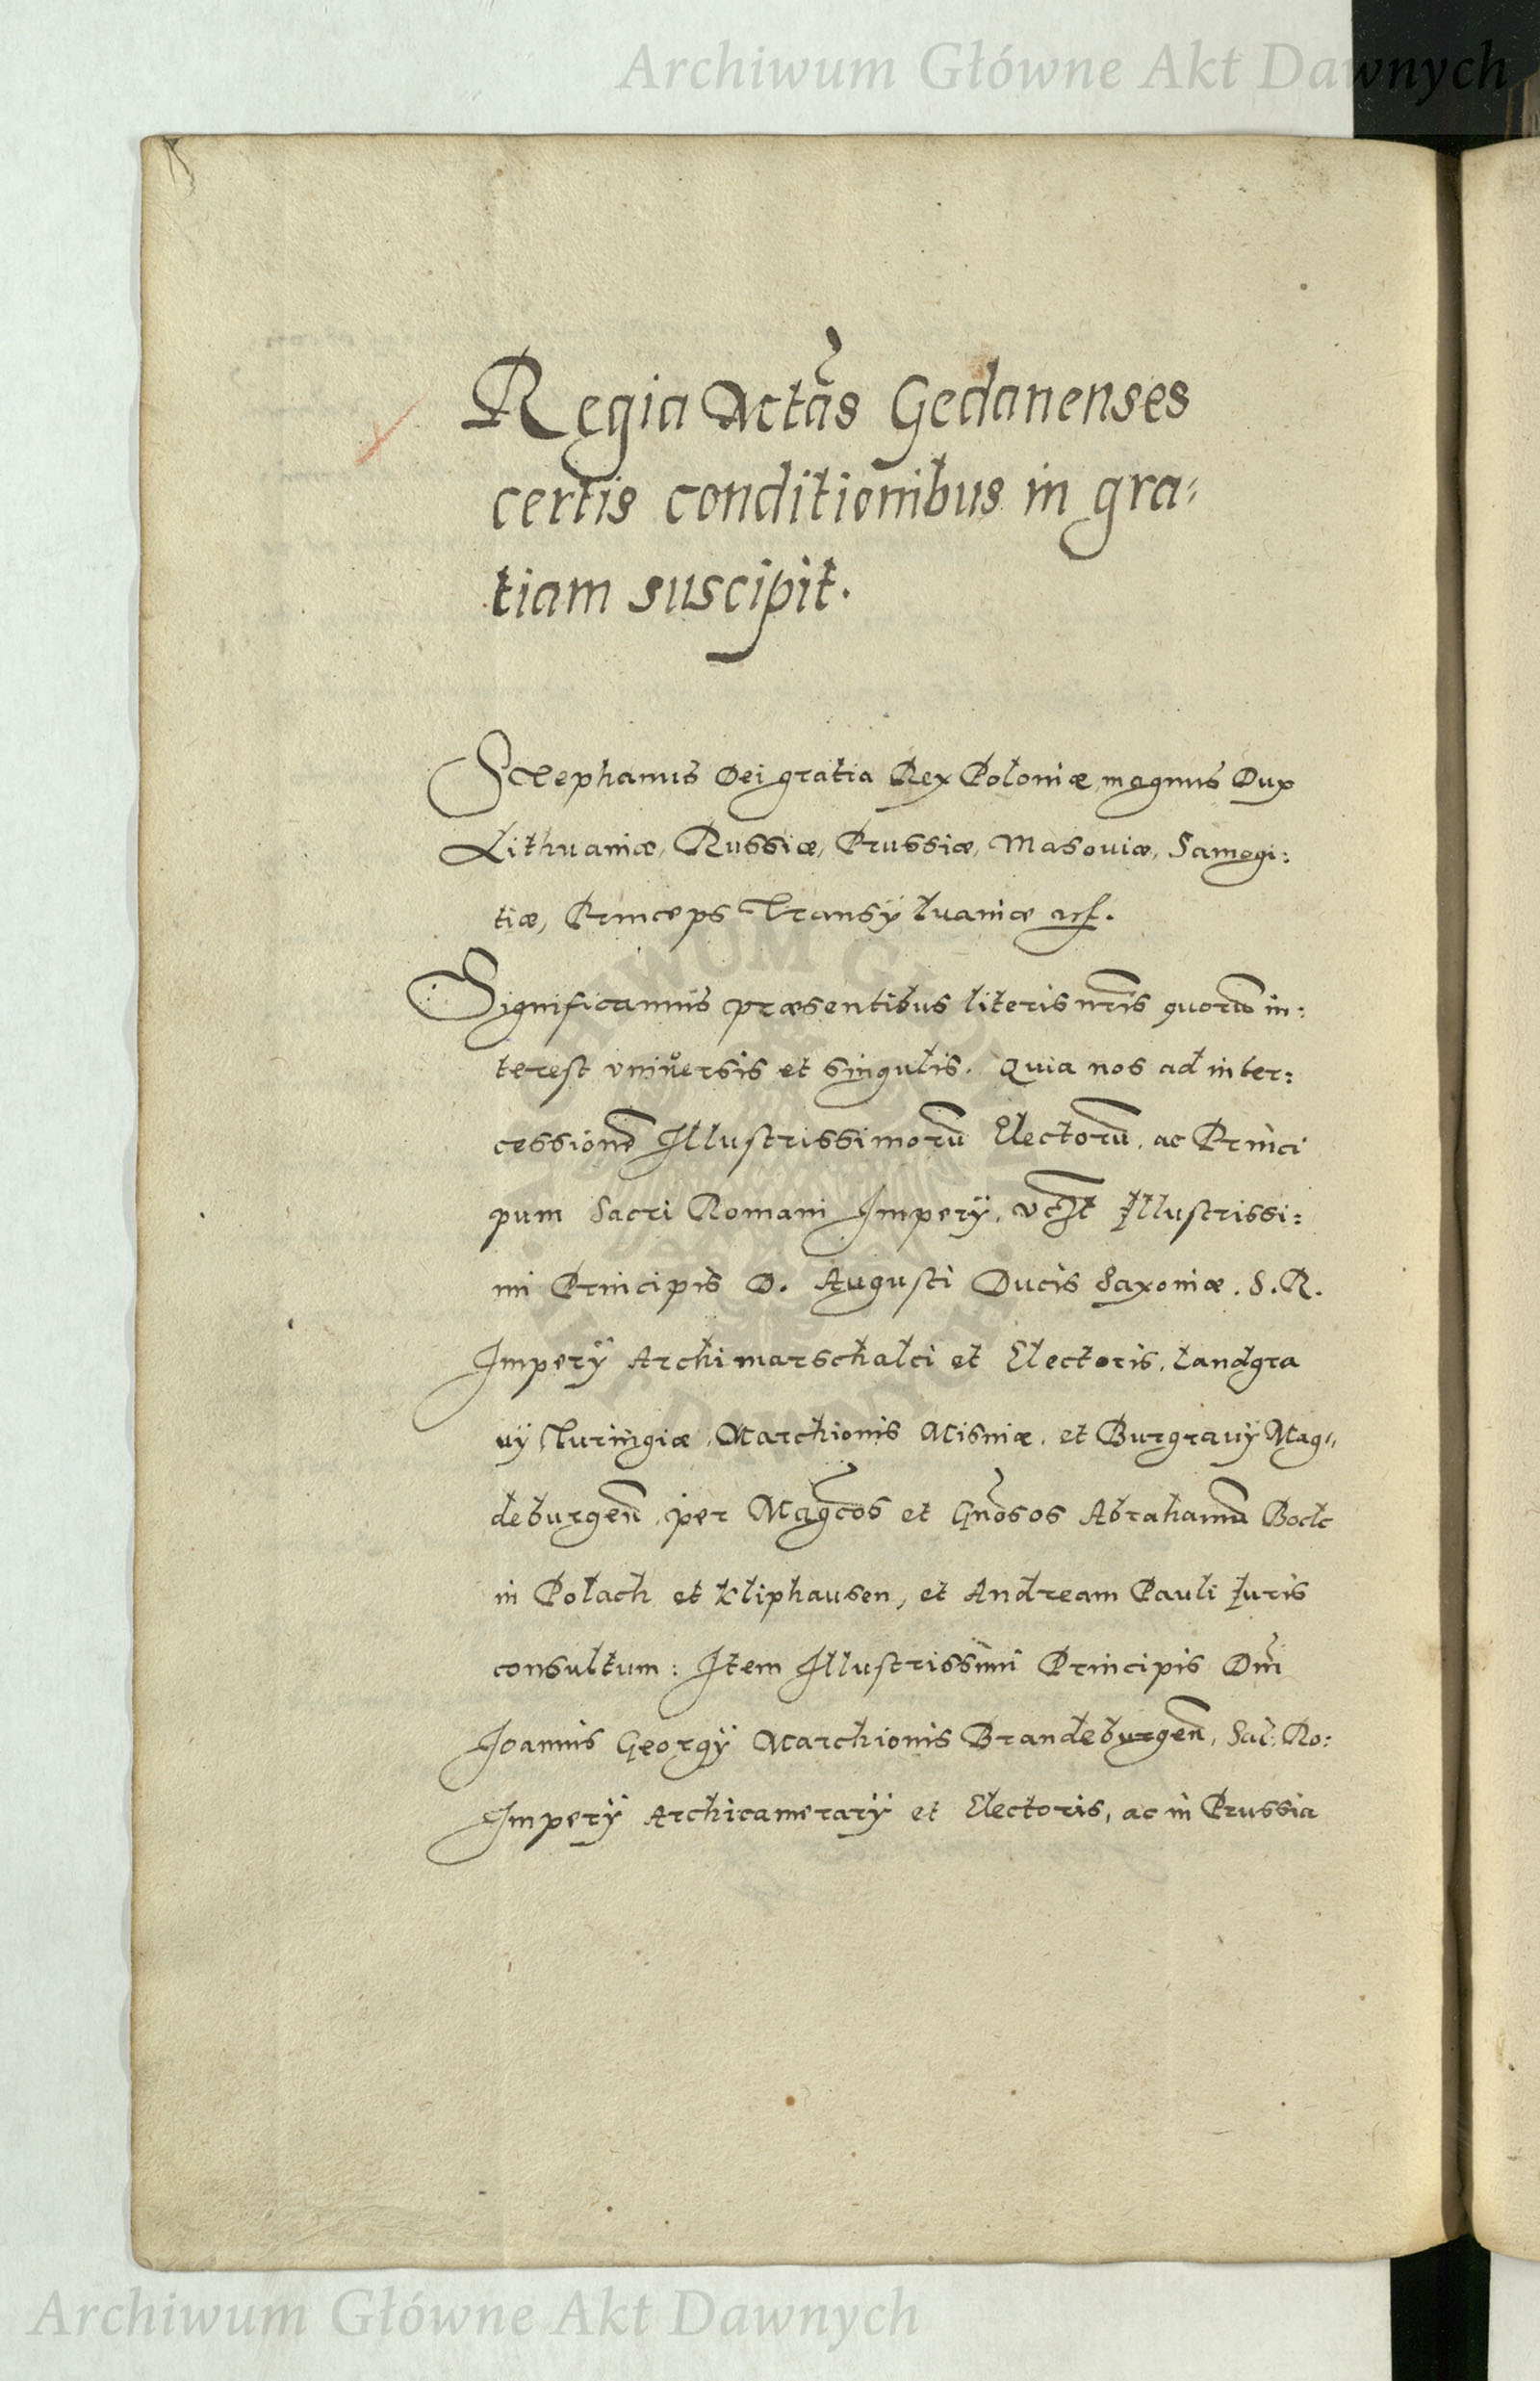 Archiwum Główne Akt Dawnych
Regia Mctas Gedanenses
certis conditionibus in gra:
tiam suscipit.
Stephanus Dei gratia Rex Poloniæ magnus Dux
Lithuaniæ, Russiæ, Prussiæ, Masouiæ, Samogi:
tiæ, Princeps Transyluaniæ
Significamus præsentibus literis nris quorũ in:
terest vniuersis et singulis. Quia nos ad inter:
cessionẽ Illustrissimorũ Electorũ, ac Princi
pum Sacri Romani Impery, Illustrissi:
mi Principis D. Augusti Ducis Saxoniæ. S. R.
Impery Archimarschalci et Electoris, Landgra
uÿ Turingiæ, Marchionis Misniæ, et Burgrauÿ Mag:
deburgeñ, per Magcos et Gnosos Abrahamũ Bock
in Polach et Kliphausen, et Andream Pauli Iuris
consultum: Item Illustrissimi Principis Dni
Joannis Georgÿ Marchionis Brandeburgeñ, Sac. Ro:
Imperÿ Archicamerarÿ et Electoris, ac in Prussia
Archiwum Główne Akt Dawnych